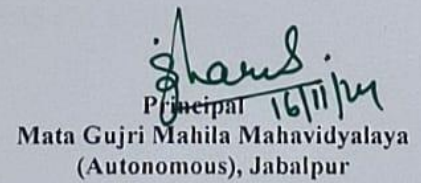 Principal 16/11/24
Mata Gujri Mahila Mahavidyalaya
(Autonomous), Jabalpur